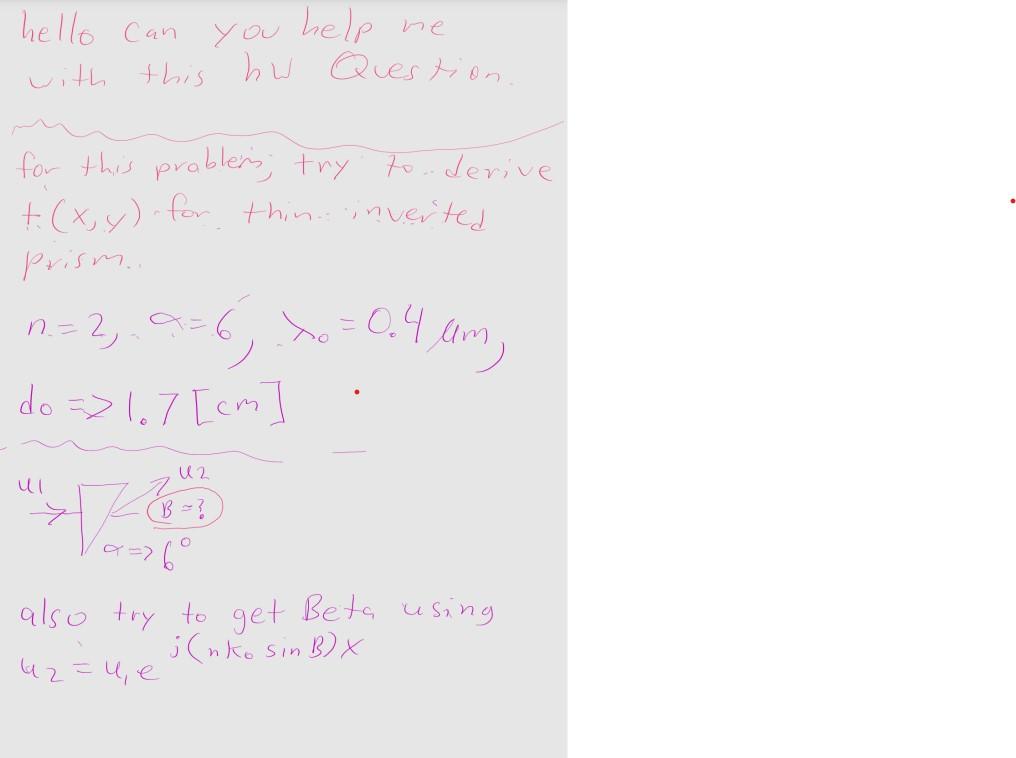 hello can you help me
with this hw Question.
for this problem, try to derive
t(x,y) for thin inverted
prism.
n = 2, α = 6, λ₀ = 0.4 μm,
do => 1.7 [cm]
u1
u2
B = ?
α => 6°
also try to get Beta using
u₂ = u₁ e^{j(nk₀ sin B)x}